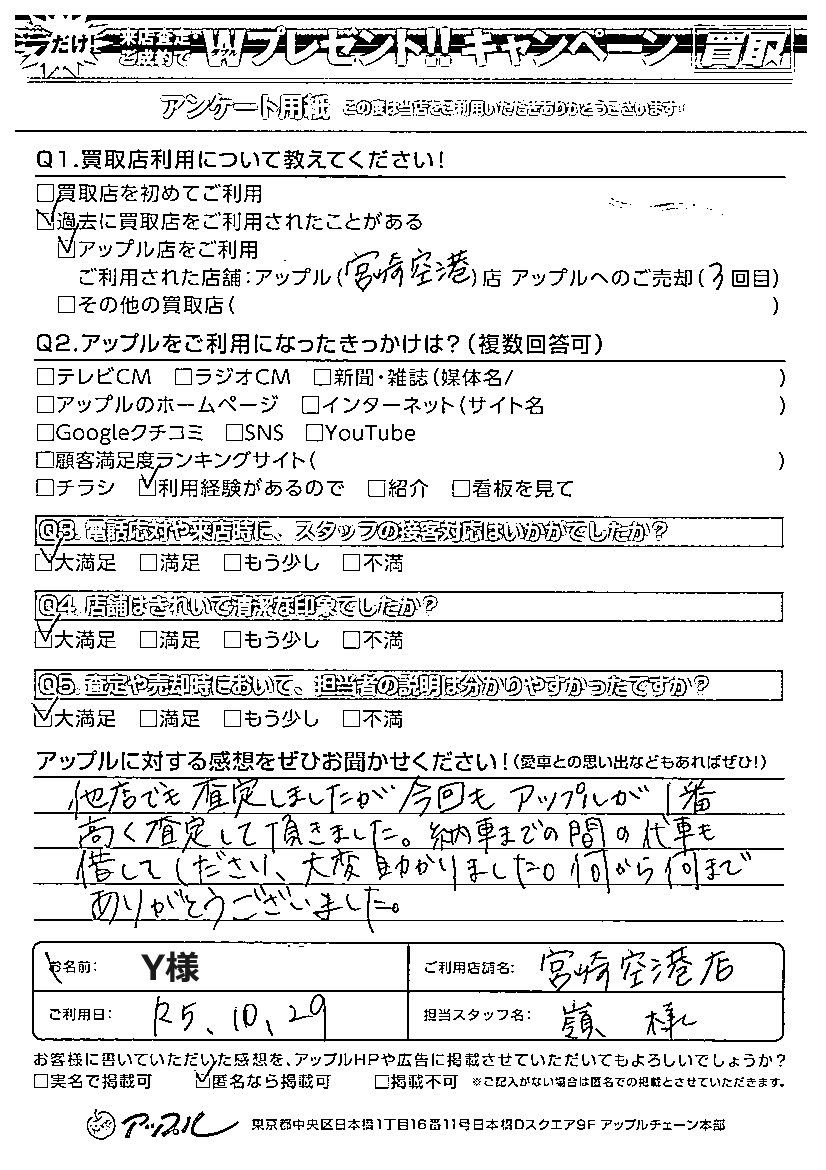 今だけ！ 来店査定・ご成約で Wプレゼント!! キャンペーン 買取
アンケート用紙 この度は当店をご利用いただきありがとうございます！
Q1.買取店利用について教えてください！
□買取店を初めてご利用
☑過去に買取店をご利用されたことがある
☑アップル店をご利用
ご利用された店舗：アップル（宮崎空港）店 アップルへのご売却（3回目）
□その他の買取店（ ）
Q2.アップルをご利用になったきっかけは？（複数回答可）
□テレビCM □ラジオCM □新聞・雑誌（媒体名/ ）
□アップルのホームページ □インターネット（サイト名 ）
□Googleクチコミ □SNS □YouTube
□顧客満足度ランキングサイト（ ）
□チラシ ☑利用経験があるので □紹介 □看板を見て
Q3. 電話応対や来店時に、スタッフの接客対応はいかがでしたか？
☑大満足 □満足 □もう少し □不満
Q4. 店舗はきれいで清潔な印象でしたか？
☑大満足 □満足 □もう少し □不満
Q5. 査定や売却時において、担当者の説明は分かりやすかったですか？
☑大満足 □満足 □もう少し □不満
アップルに対する感想をぜひお聞かせください！（愛車との思い出などもあればぜひ！）
他店でも査定しましたが今回もアップルが1番
高く査定して頂きました。納車までの間の代車も
借してくださり、大変助かりました。何から何まで
ありがとうございました。
お名前： Y様 ご利用店舗名： 宮崎空港店
ご利用日： R5、10、29 担当スタッフ名： 嶺 様
お客様に書いていただいた感想を、アップルHPや広告に掲載させていただいてもよろしいでしょうか？
□実名で掲載可 ☑匿名なら掲載可 □掲載不可 ※ご記入がない場合は匿名での掲載とさせていただきます。
アップル 東京都中央区日本橋1丁目16番11号日本橋Dスクエア9F アップルチェーン本部